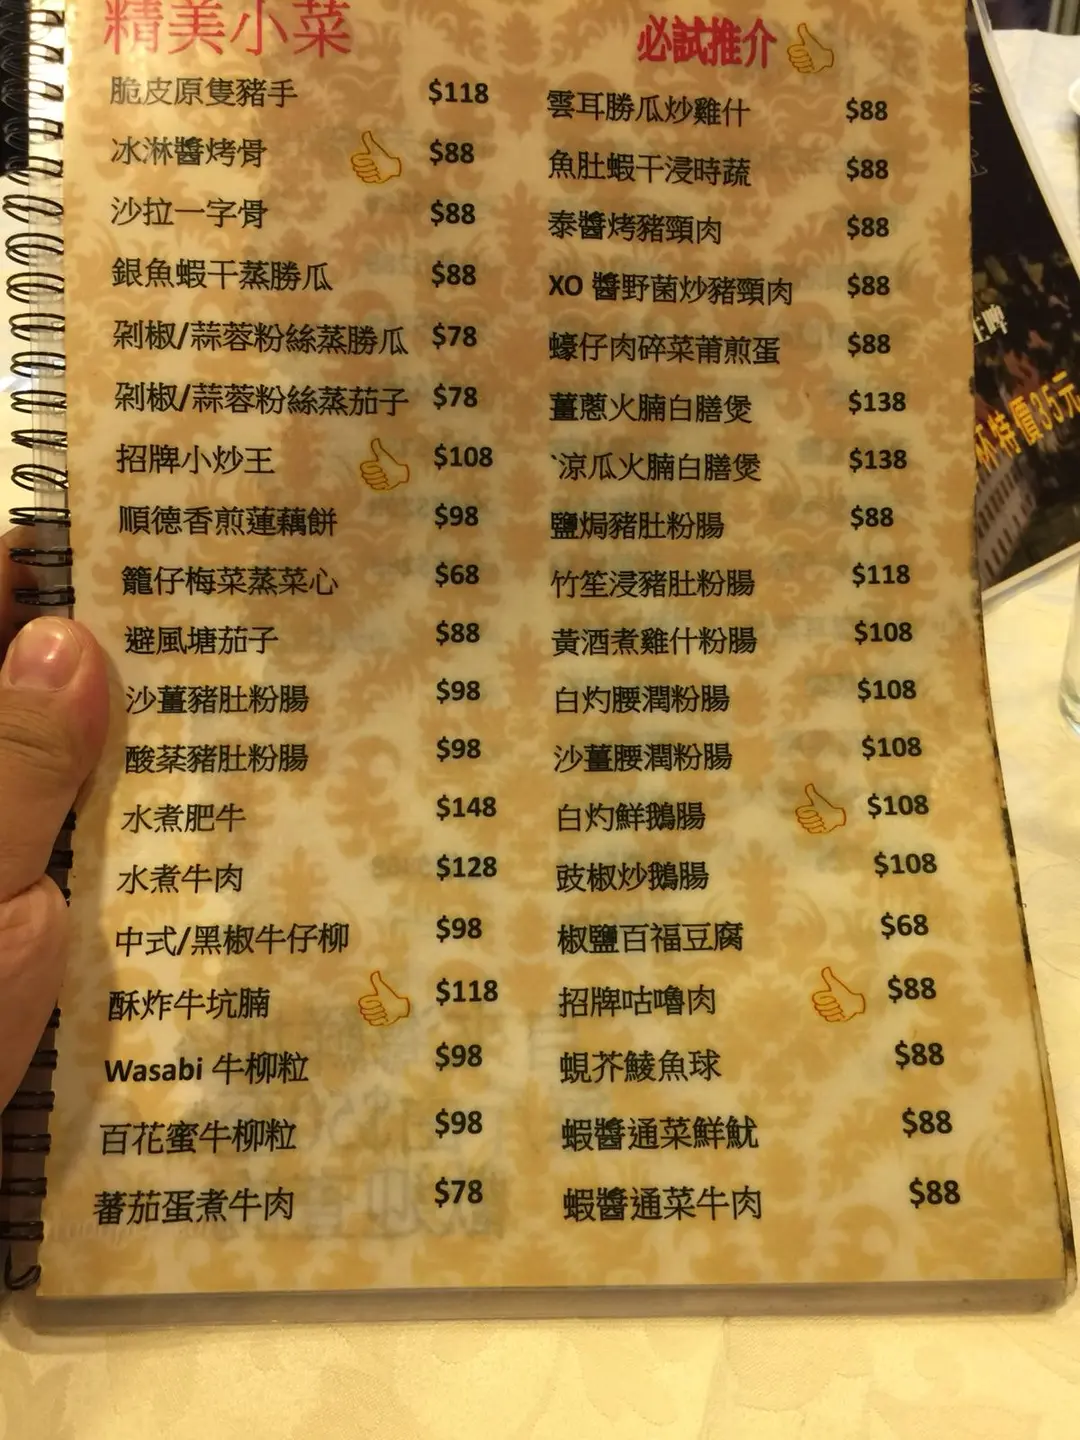 精美小菜
脆皮原隻豬手 $118
冰淋醬烤骨 $88
沙拉一字骨 $88
銀魚蝦干蒸勝瓜 $88
剁椒/蒜蓉粉絲蒸勝瓜 $78
剁椒/蒜蓉粉絲蒸茄子 $78
招牌小炒王 $108
順德香煎蓮藕餅 $98
籠仔梅菜蒸菜心 $68
避風塘茄子 $88
沙薑豬肚粉腸 $98
酸菜豬肚粉腸 $98
水煮肥牛 $148
水煮牛肉 $128
中式/黑椒牛仔柳 $98
酥炸牛坑腩 $118
Wasabi 牛柳粒 $98
百花蜜牛柳粒 $98
蕃茄蛋煮牛肉 $78
必試推介
雲耳勝瓜炒雞什 $88
魚肚蝦干浸時蔬 $88
泰醬烤豬頸肉 $88
XO 醬野菌炒豬頸肉 $88
蠔仔肉碎菜莆煎蛋 $88
薑蔥火腩白膳煲 $138
`涼瓜火腩白膳煲 $138
鹽焗豬肚粉腸 $88
竹笙浸豬肚粉腸 $118
黃酒煮雞什粉腸 $108
白灼腰潤粉腸 $108
沙薑腰潤粉腸 $108
白灼鮮鵝腸 $108
豉椒炒鵝腸 $108
椒鹽百福豆腐 $68
招牌咕嚕肉 $88
蜆芥鯪魚球 $88
蝦醬通菜鮮魷 $88
蝦醬通菜牛肉 $88
啤
杯特價35元